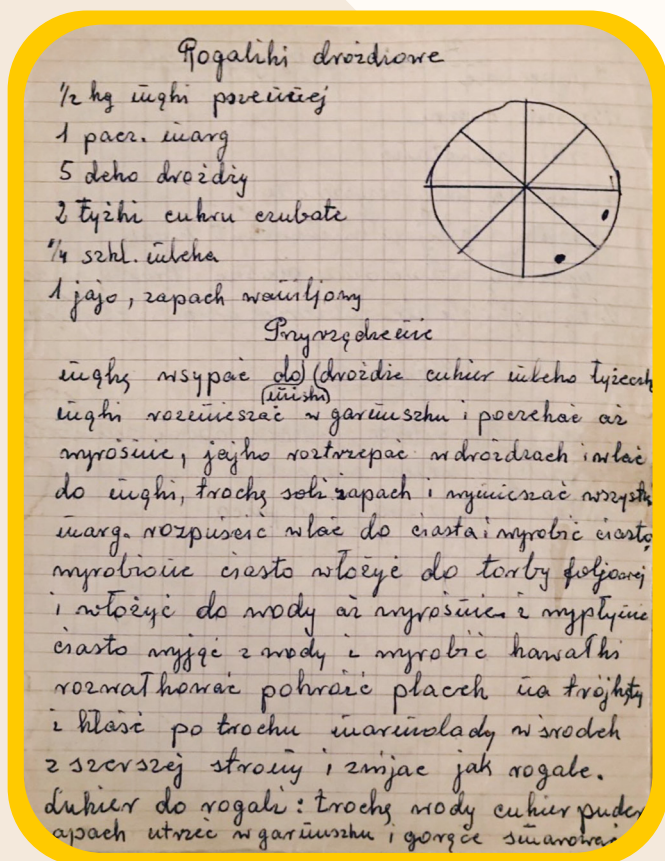 Rogaliki drożdżowe
1/2 kg mąki pszennej
1 pacz. marg
5 deko drożdży
2 łyżki cukru czubate
1/4 szkl. mleka
1 jajo, zapach waniljowy
Przyrządzenie
mąkę wsypać do (drożdże cukier mleko łyżeczk
(miski)
mąki rozmieszać w garnuszku i poczekać aż
wyrośnie, jajko roztrzepać w drożdżach i wlać
do mąki, trochę soli zapach i wymieszać wszystk
marg. rozpuścić wlać do ciasta i wyrobić ciasto,
wyrobione ciasto włożyć do torby foljowej
i włożyć do wody aż wyrośnie i wypłynie
ciasto wyjąć z wody i wyrobić kawałki
rozwałkować pokroić placek na trójkąty
i kłaść po trochu marmolady w środek
z szerszej strony i zwijac jak rogale.
Lukier do rogali: trochę wody cukier puder
apach utrzeć w garnuszku i gorące smarować